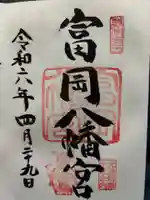 富岡八幡宮
令和六年四月二十九日